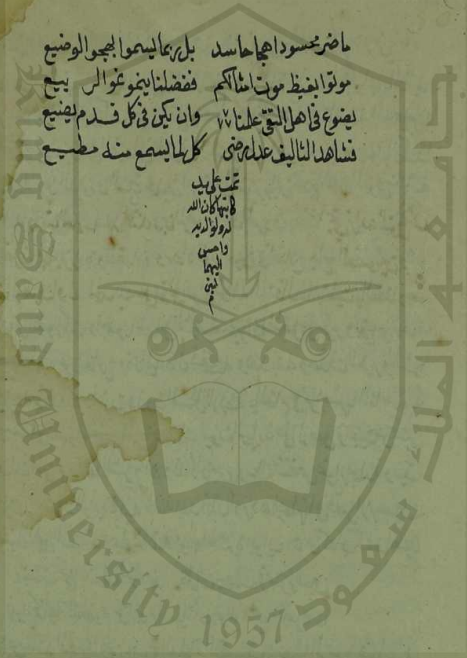 ما ضر محسودا هجا حاسد بل ربما يسموا بهجو الوضيع
موتوا بغيظ موت امثالكم ففضلنا ينمو نمو الربيع
يضوع في اهل التقى علمنا وان يكن في كل فدم يضيع
فشاهد التاليف عدل رضى كل لما يسمع منه مطيع
تمت على يد
كاتبها كان الله
له ولوالديه
واحسن
اليهما
King Saud University
1957
جامعة الملك سعود